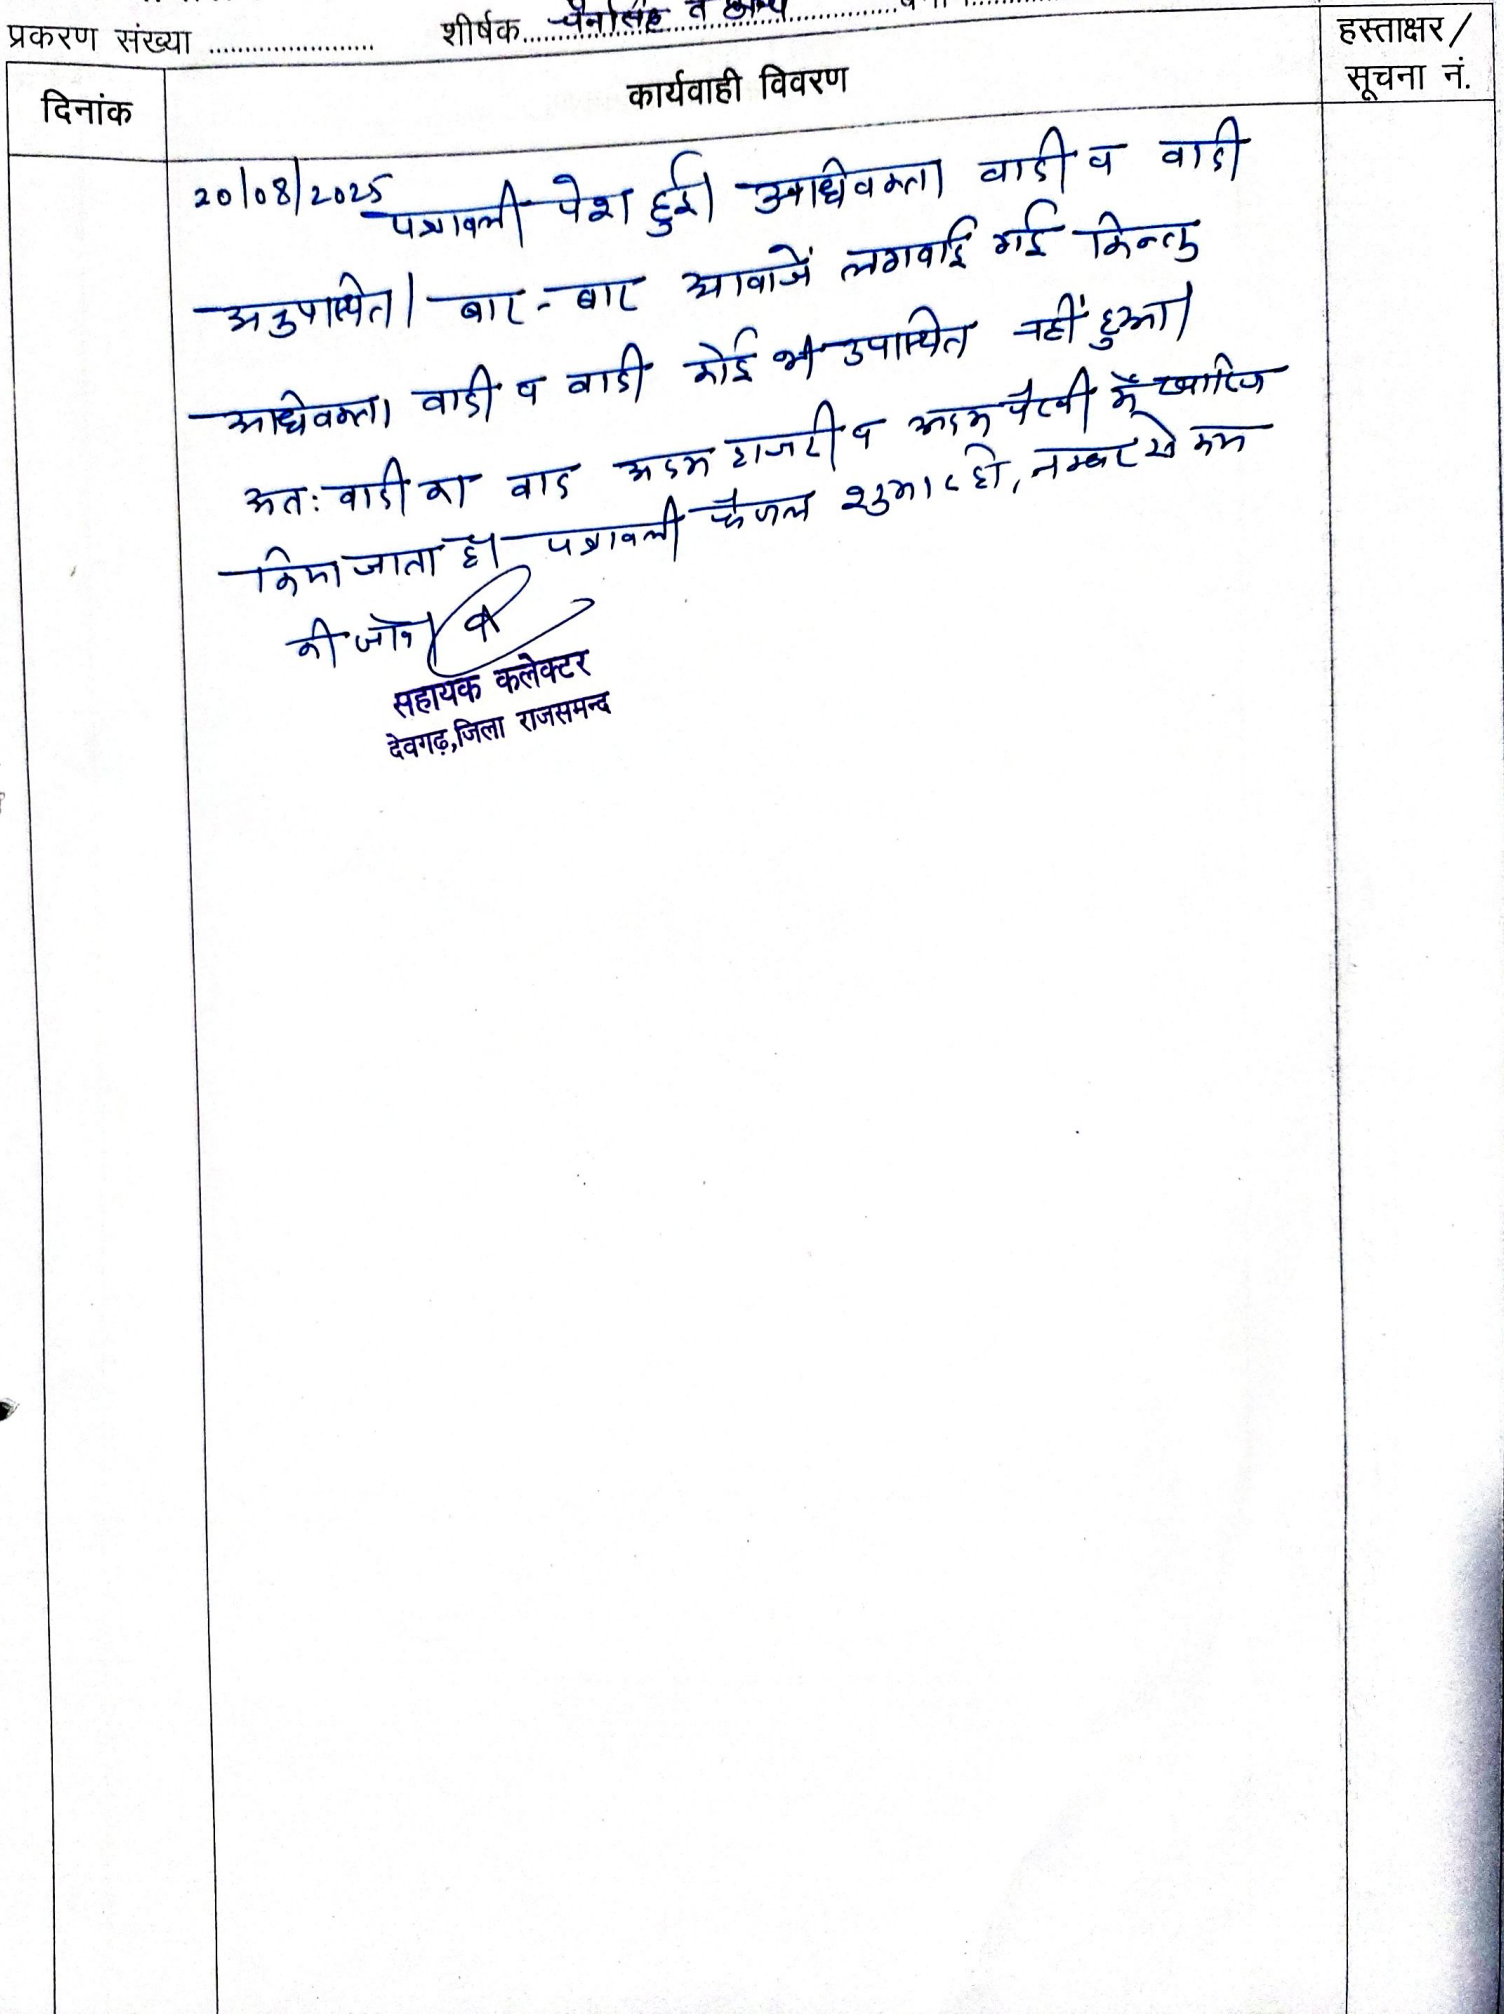 प्रकरण संख्या ........................ शीर्षक.....चैनसिंह व अन्य..............
हस्ताक्षर/
सूचना नं.
दिनांक
कार्यवाही विवरण
20/08/2025
पत्रावली पेश हुई। अधिवक्ता वादी व वादी
अनुपस्थित। बार-बार आवाजें लगवाई गई किन्तु
अधिवक्ता वादी व वादी कोई भी उपस्थित नहीं हुआ।
अतः वादी का वाद अदम हाजरी व अदम पैरवी में खारिज
किया जाता है। पत्रावली फैजल शुमार हो, नम्बर से कम
की जावे।
सहायक कलेक्टर
देवगढ़,जिला राजसमन्द